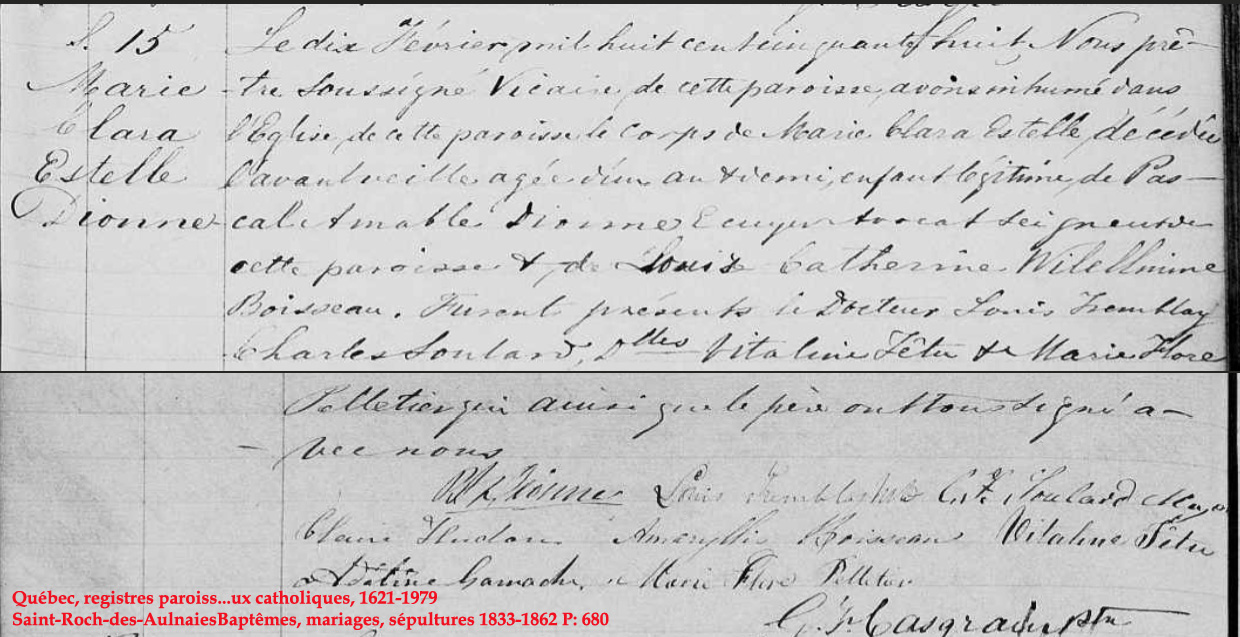 S. 15
Marie
Clara
Estelle
Dionne
Le dix Février mil huit cent cinquante huit Nous prê-
tre soussigné Vicaire de cette paroisse avons inhumé dans
l'Eglise de cette paroisse le corps de Marie Clara Estelle, décédée
l'avant veille agée d'un an & demi, enfant légitime de Pas-
cal Amable Dionne Ecuyer Avocat Seigneur de
cette paroisse & de Louise Catherine Wilellmine
Boisseau. Furent présents le Docteur Louis Tremblay
Charles Soulard, Dlles Vitaline Têtu & Marie Flore
Pelletier qui ainsi que le père ont tous signé a-
vec nous
P. A. Dionne Louis Tremblay C. F. Soulard
Claire Hudon Ameryllis Boisseau Vitaline Têtu
Adéline Gamache Marie Flore Pelletier
Casgrain Ptre
Québec, registres paroiss...ux catholiques, 1621-1979
Saint-Roch-des-AulnaiesBaptêmes, mariages, sépultures 1833-1862 P: 680